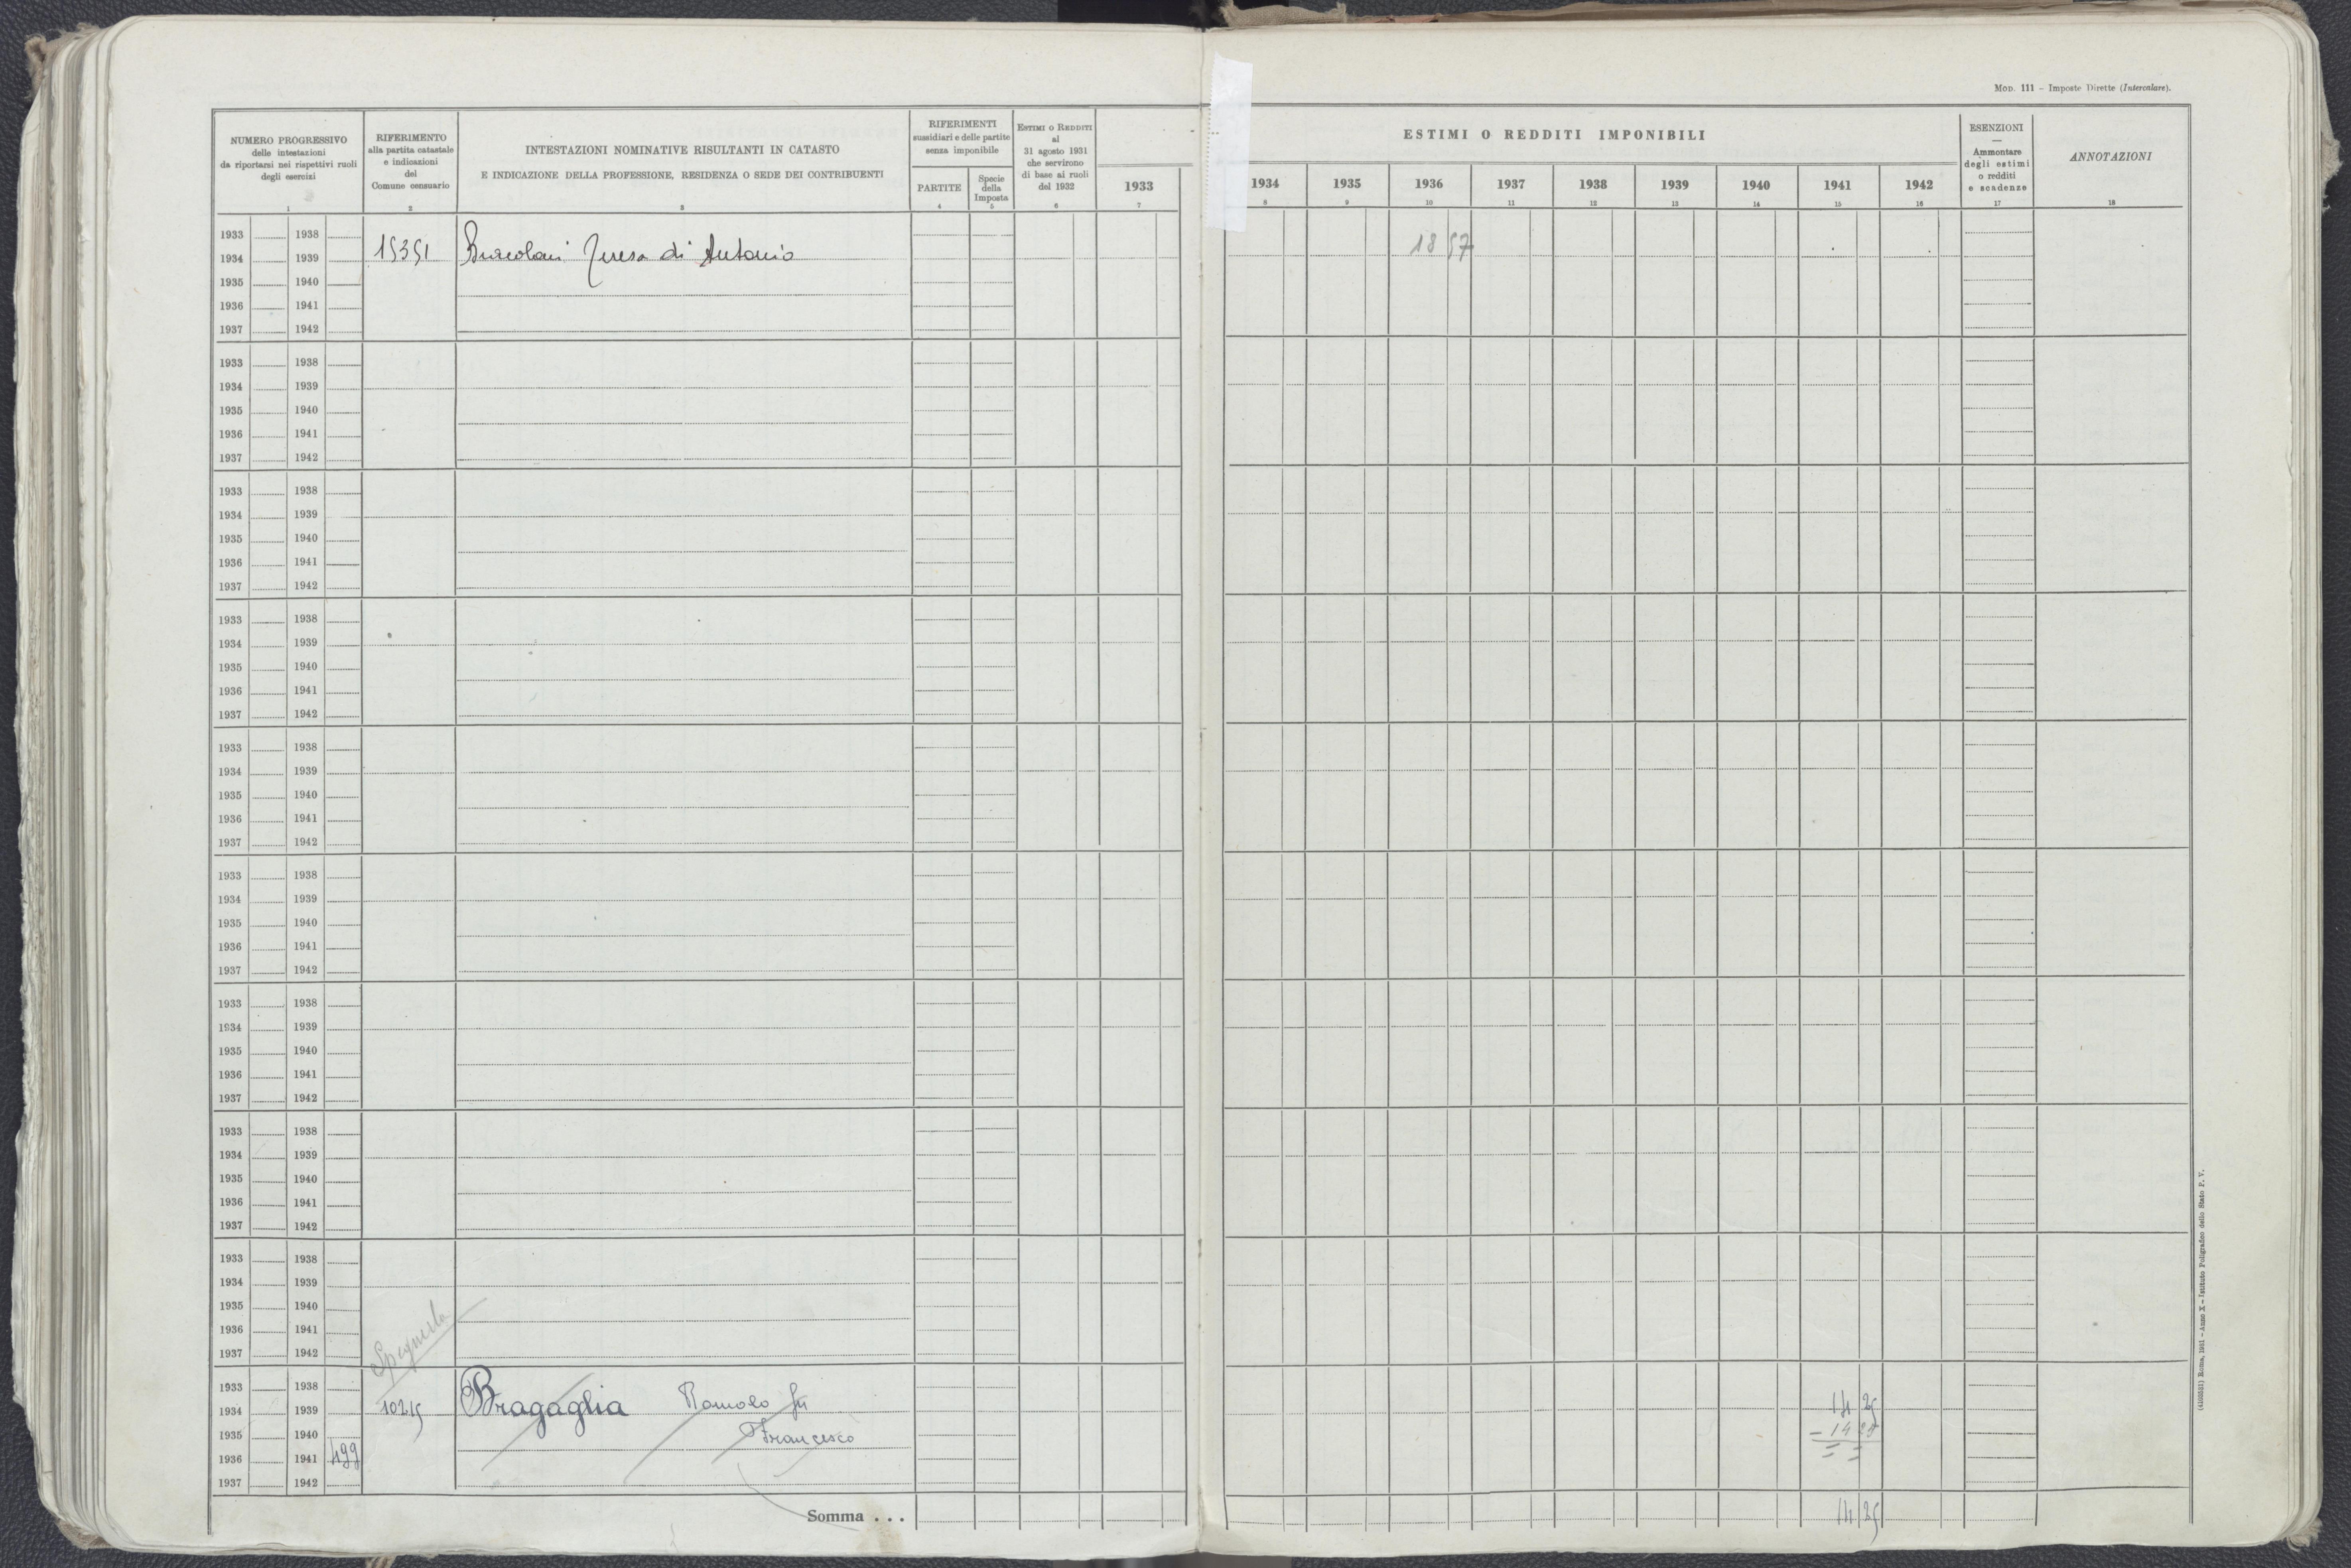 Mod. 111 – Imposte Dirette (Intercalare).
NUMERO PROGRESSIVO
delle intestazioni
da riportarsi nei rispettivi ruoli
degli esercizi
1
RIFERIMENTO
alla partita catastale
e indicazioni
del
Comune censuario
2
INTESTAZIONI NOMINATIVE RISULTANTI IN CATASTO
E INDICAZIONE DELLA PROFESSIONE, RESIDENZA O SEDE DEI CONTRIBUENTI
3
RIFERIMENTI
sussidiari e delle partite
senza imponibile
PARTITE
4
Specie
della
Imposta
5
Estimi o Redditi
al
31 agosto 1931
che servirono
di base ai ruoli
del 1932
6
1933
7
ESTIMI O REDDITI IMPONIBILI
1934 1935 1936 1937 1938 1939 1940 1941 1942
8 9 10 11 12 13 14 15 16
ESENZIONI
—
Ammontare
degli estimi
o redditi
e scadenze
17
ANNOTAZIONI
18
1933 1938
1934 1939 15351 Teresa di Antonio 18 57
1935 1940
1936 1941
1937 1942
1933 1938
1934 1939
1935 1940
1936 1941
1937 1942
1933 1938
1934 1939
1935 1940
1936 1941
1937 1942
1933 1938
1934 1939
1935 1940
1936 1941
1937 1942
1933 1938
1934 1939
1935 1940
1936 1941
1937 1942
1933 1938
1934 1939
1935 1940
1936 1941
1937 1942
1933 1938
1934 1939
1935 1940
1936 1941
1937 1942
1933 1938
1934 1939
1935 1940
1936 1941
1937 1942
1933 1938
1934 1939
1935 1940
1936 1941
1937 1942
1933 1938
1934 1939 10215 Bragaglia Romolo fu 14 25
1935 1940 Francesco – 14 25
1936 1941 499 = =
1937 1942
Somma . . . 14 25
(4100531) Roma, 1931 – Anno X – Istituto Poligrafico dello Stato P. V.